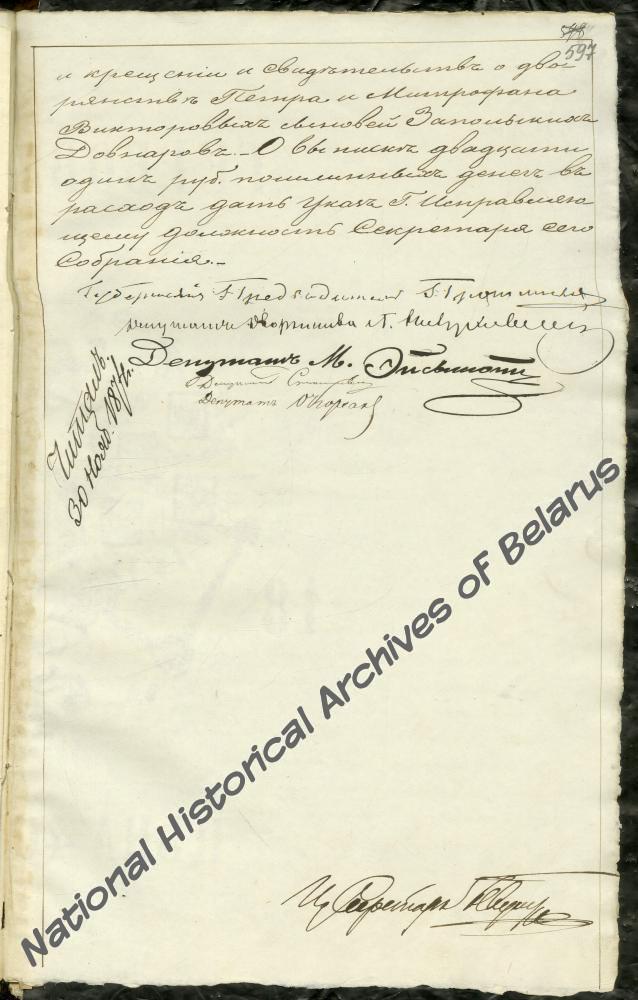 598
597
и крещеніи и свидѣтельствъ о дво-
рянствѣ Петра и Митрофана
Викторовыхъ сыновей Запольскихъ
Довнаровъ. – О выпискѣ двадцати
одинъ руб. пошлинныхъ денегъ въ
расходъ дать Указъ Г. Исправляю-
щему должность Секретаря сего
Собранія. –
Губернскій Предводитель
Депутатъ
Депутатъ М.
Депутатъ
Депутатъ
Читалъ.
30 Нояб. 1874 г.
National Historical Archives of Belarus
Секретарь